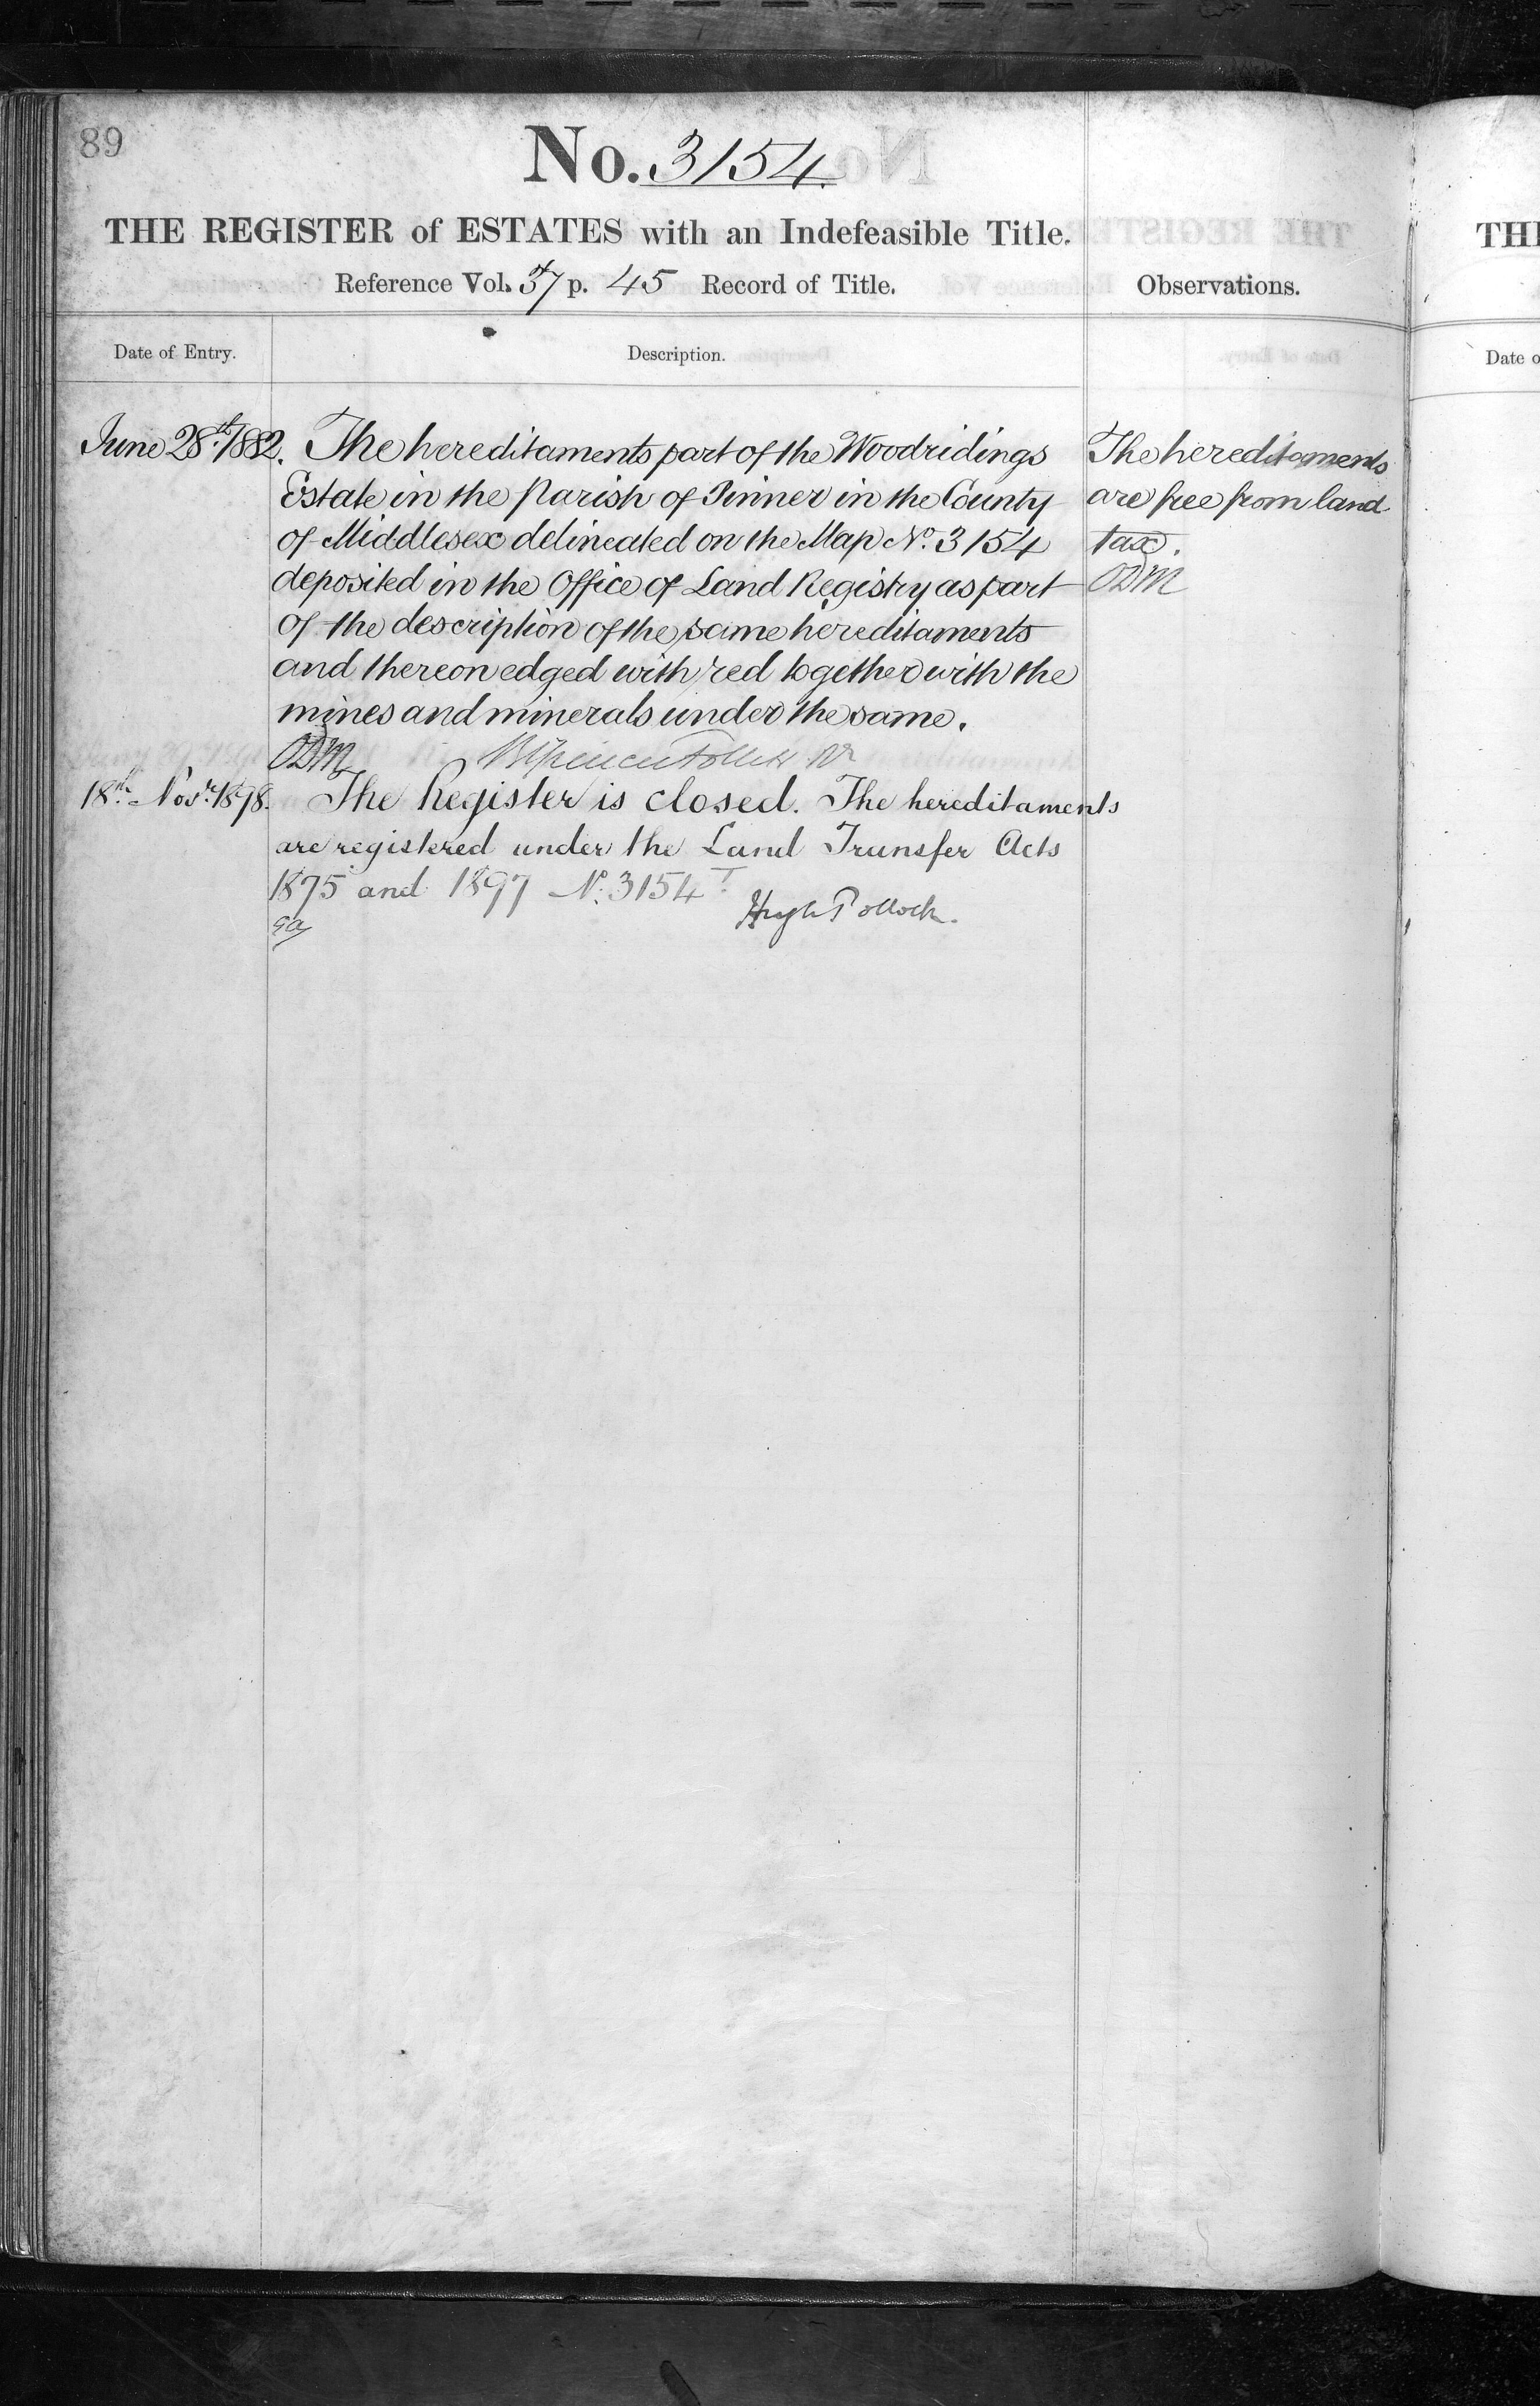 89
No. 3154.
THE REGISTER of ESTATES with an Indefeasible Title.
Reference Vol. 37 p. 45 Record of Title.
Observations.
Date of Entry.
Description.
June 28th 1882.
The hereditaments part of the Woodridings
Estate in the Parish of Pinner in the County
of Middlesex delineated on the Map No. 3154
deposited in the Office of Land Registry as part
of the description of the same hereditaments
and thereon edged with red together with the
mines and minerals under the same.
ODM
The hereditaments
are free from land
tax.
ODM
18th Novr. 1898.
The Register is closed. The hereditaments
are registered under the Land Transfer Acts
1875 and 1897 No. 3154T.
Hugh Pollock.
TH
Date o